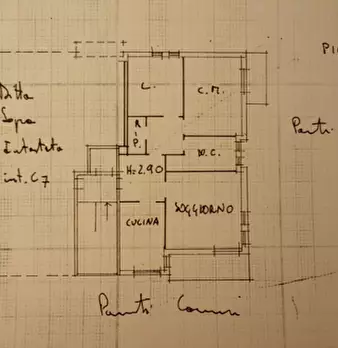 PI
L.
C.M.
Ditta
Sopra
R
i
P.
Intestata
W.C.
int. C7
H=2.90
SOGGIORNO
CUCINA
Parti Comuni